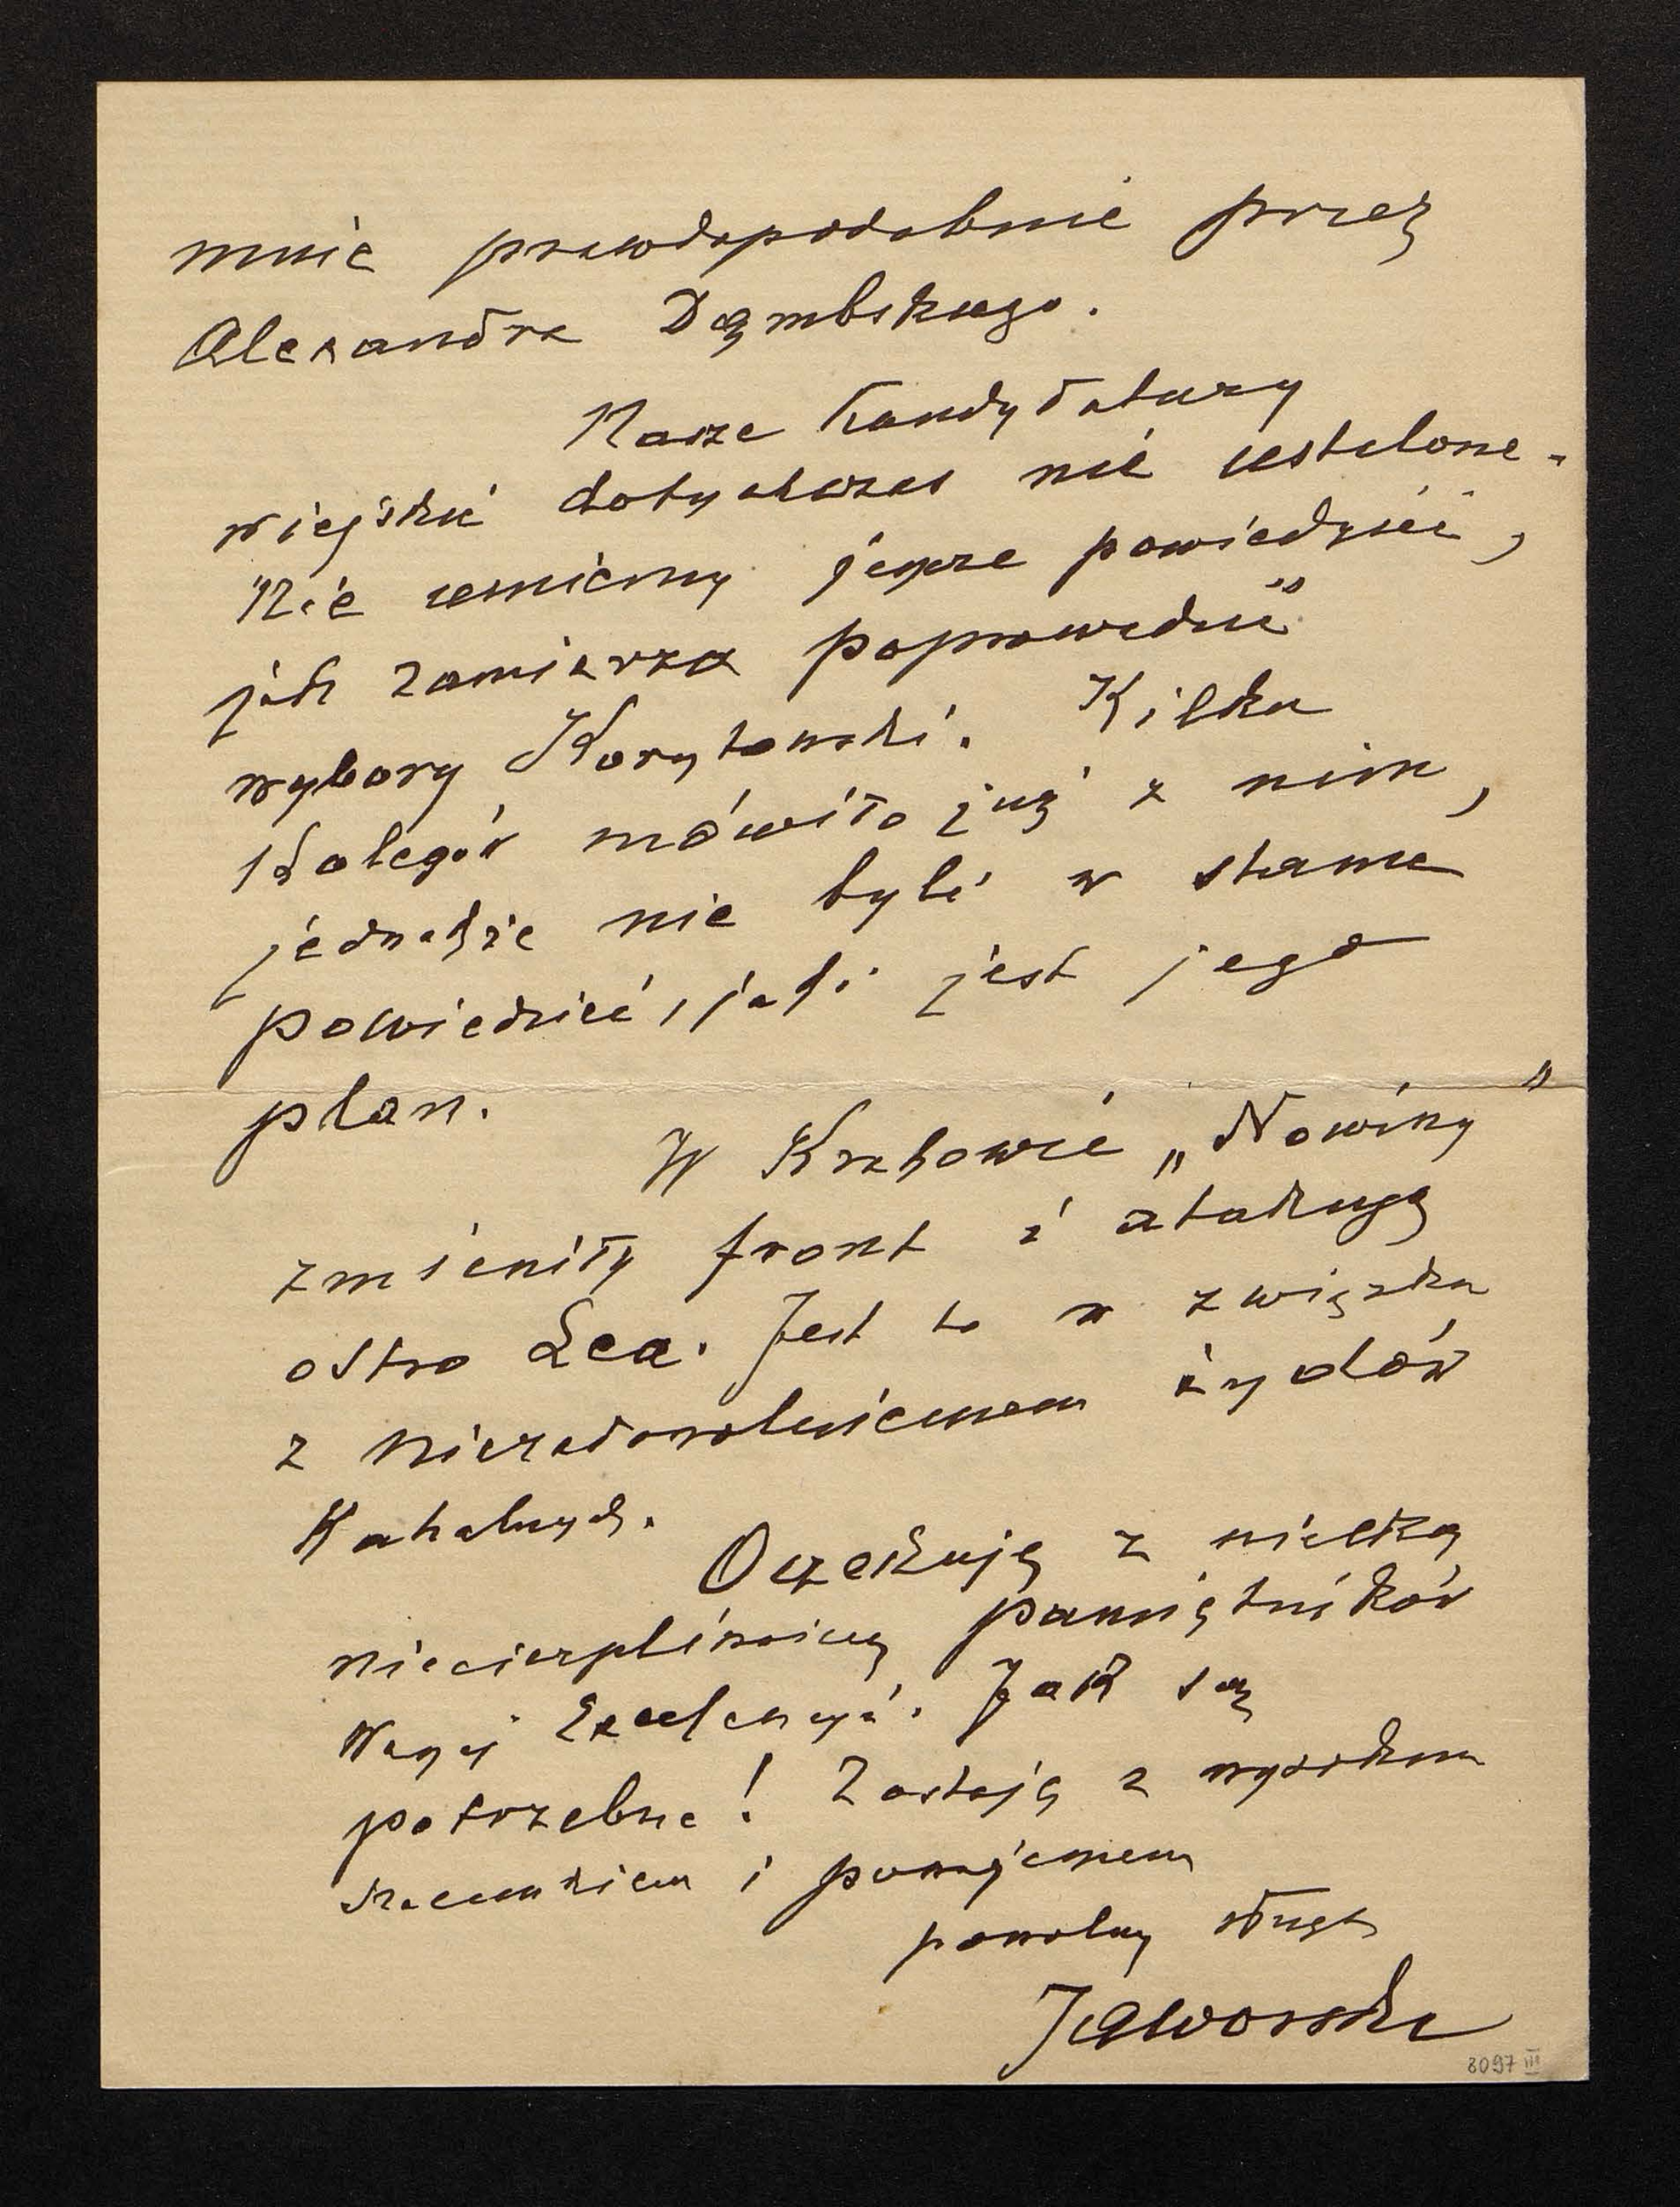 mnie prawdopodobnie przez
Alexandra Dąmbskiego.
Nasze kandydatury
wiejskie dotychczas nie ustalone.
Nie umiemy jeszcze powiedzieć,
jak zamierza poprowadzić
wybory Korytowski. Kilku
kolegów mówiło już z nim,
jednakże nie byli w stanie
powiedzieć, jaki jest jego
plan.
W Krakowie „Nowiny"
zmieniły front i atakują
ostro Lea. Jest to w związku
z niezadowoleniem żydów
Kahalnych.
Oczekuję z wielką
niecierpliwością pamiętników
Waszej Excelencyi. Jak są
potrzebne! Zostaję z wysokim
szacunkiem i poważaniem
powolny sługa
Jaworski
8097 III